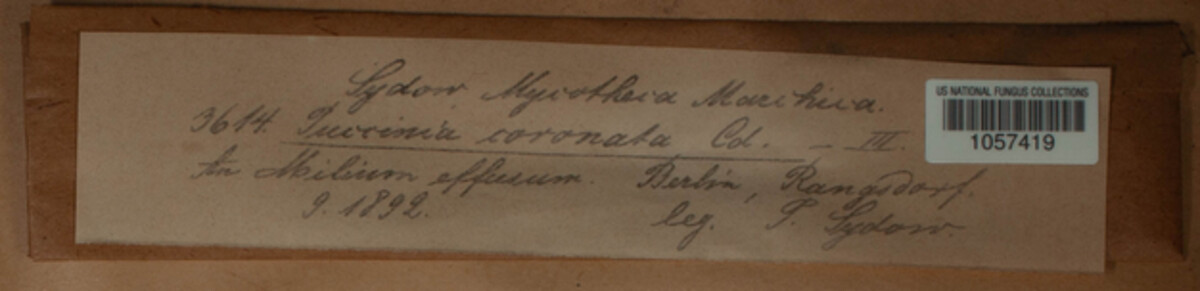 Sydow, Mycotheca Marchica.
3614. Puccinia coronata Cd. – III.
An Milium effusum. Berlin, Rangsdorf.
9. 1892. leg. P. Sydow.
US NATIONAL FUNGUS COLLECTIONS
1057419